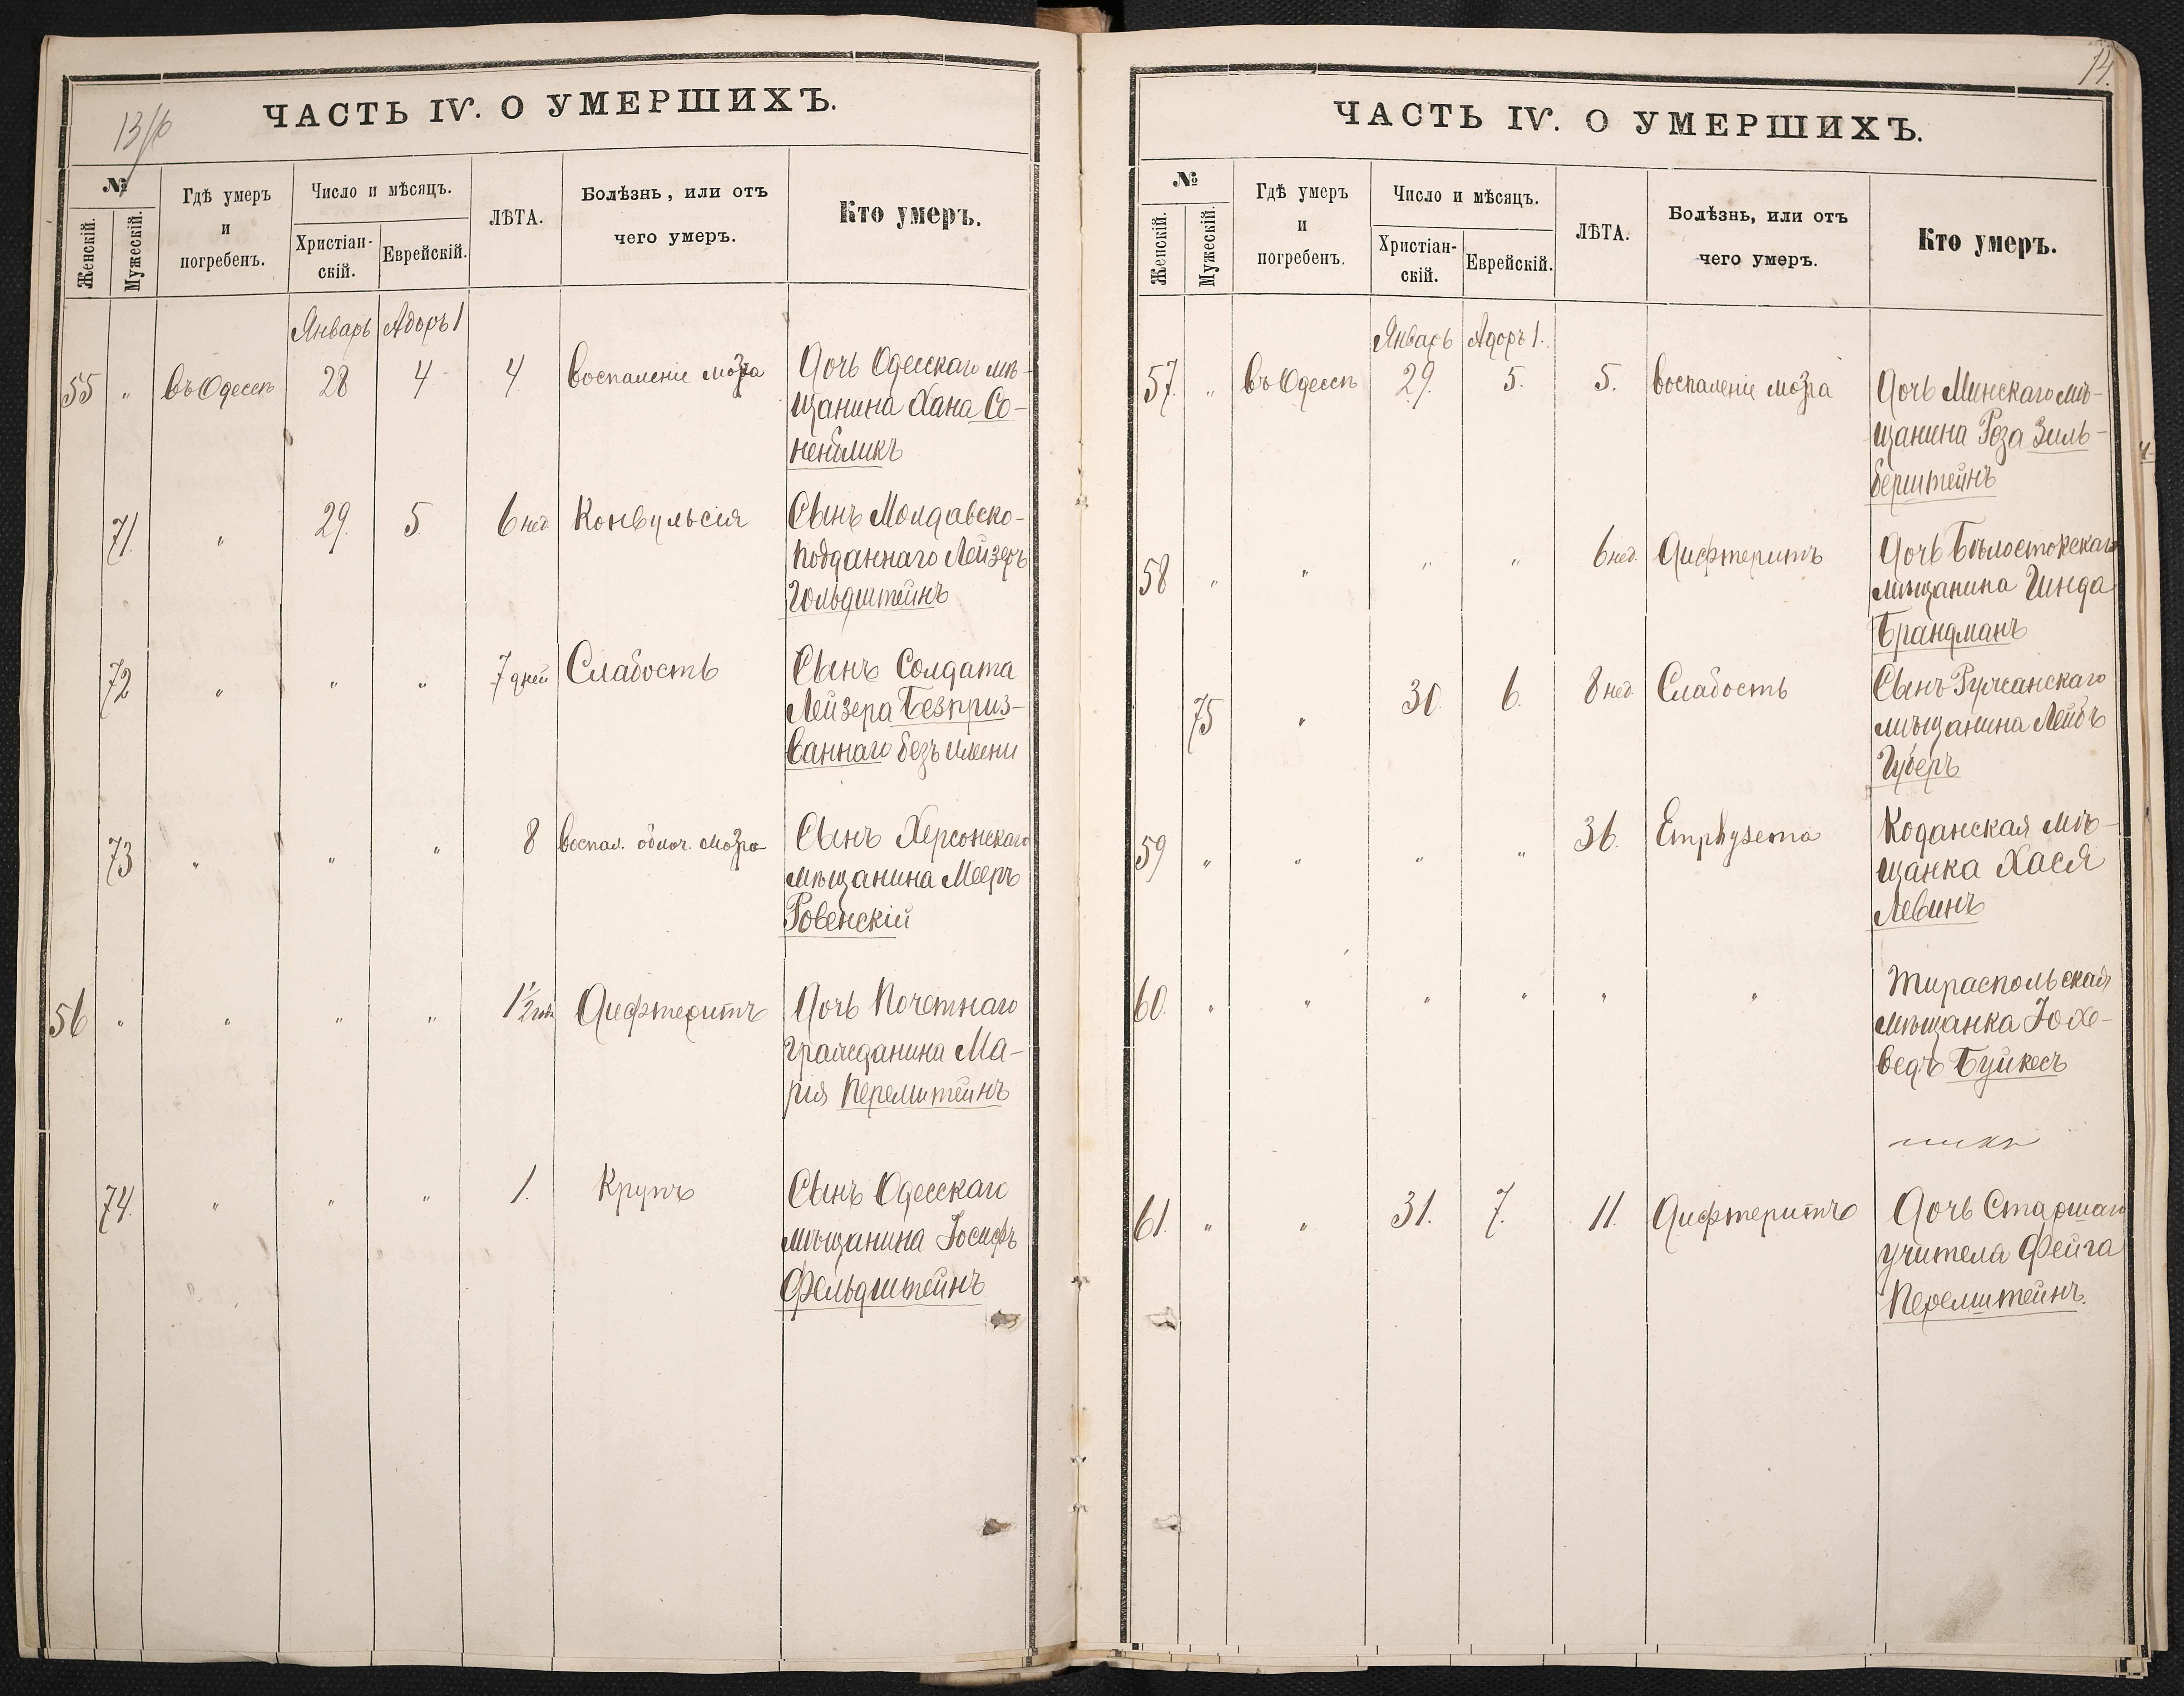 ЧАСТЬ IV. О УМЕРШИХЪ.
№
Женскій.
Мужескій.
Гдѣ умеръ
и
погребенъ.
Число и мѣсяцъ.
Христіан-
скій.
Еврейскій.
ЛѢТА.
Болѣзнь, или отъ
чего умеръ.
Кто умеръ.
Январь Адоръ 1
55 " въ Одессѣ 28 4 4 воспаленіе мозга Дочь Одесскаго мѣ-
щанина Хана Со-
ненбликъ
71. " 29. 5. 6 нед. Конвульсія Сынъ Молдавско-
подданнаго Лейзеръ
Гольдштейнъ
72 " " " 7 дней Слабость Сынъ Солдата
Лейзера Безприз-
ваннаго безъ имени
73 " " " 8 воспал. оболоч. мозга Сынъ Херсонскаго
мѣщанина Мееръ
Ровенскій
56 " " " " 1 1/2 года Дифтеритъ Дочь Почетнаго
гражданина Ма-
рія Перельштейнъ
74. " " " 1. Крупъ Сынъ Одесскаго
мѣщанина Іосифъ
Фельдштейнъ
14.
ЧАСТЬ IV. О УМЕРШИХЪ.
№
Женскій.
Мужескій.
Гдѣ умеръ
и
погребенъ.
Число и мѣсяцъ.
Христіан-
скій.
Еврейскій.
ЛѢТА.
Болѣзнь, или отъ
чего умеръ.
Кто умеръ.
Январь Адоръ 1.
57. " въ Одессѣ 29. 5. 5. воспаленіе мозга Дочь Минскаго мѣ-
щанина Роза Зиль-
берштейнъ
58 " " " " 6 нед. Дифтеритъ Дочь Бѣлостокскаго
мѣщанина Гинда
Брандманъ
75 " 30. 6. 8 нед. Слабость Сынъ Ружанскаго
мѣщанина Лейбъ
Губеръ
59 " " " " 36. Emphysema Коданская мѣ-
щанка Хася
Левинъ
60. " " " " " " Тираспольская
мѣщанка Іохе-
ведъ Буйкесъ
61. " " 31. 7. 11. Дифтеритъ Дочь Старшаго
учителя Фейга
Перельштейнъ.